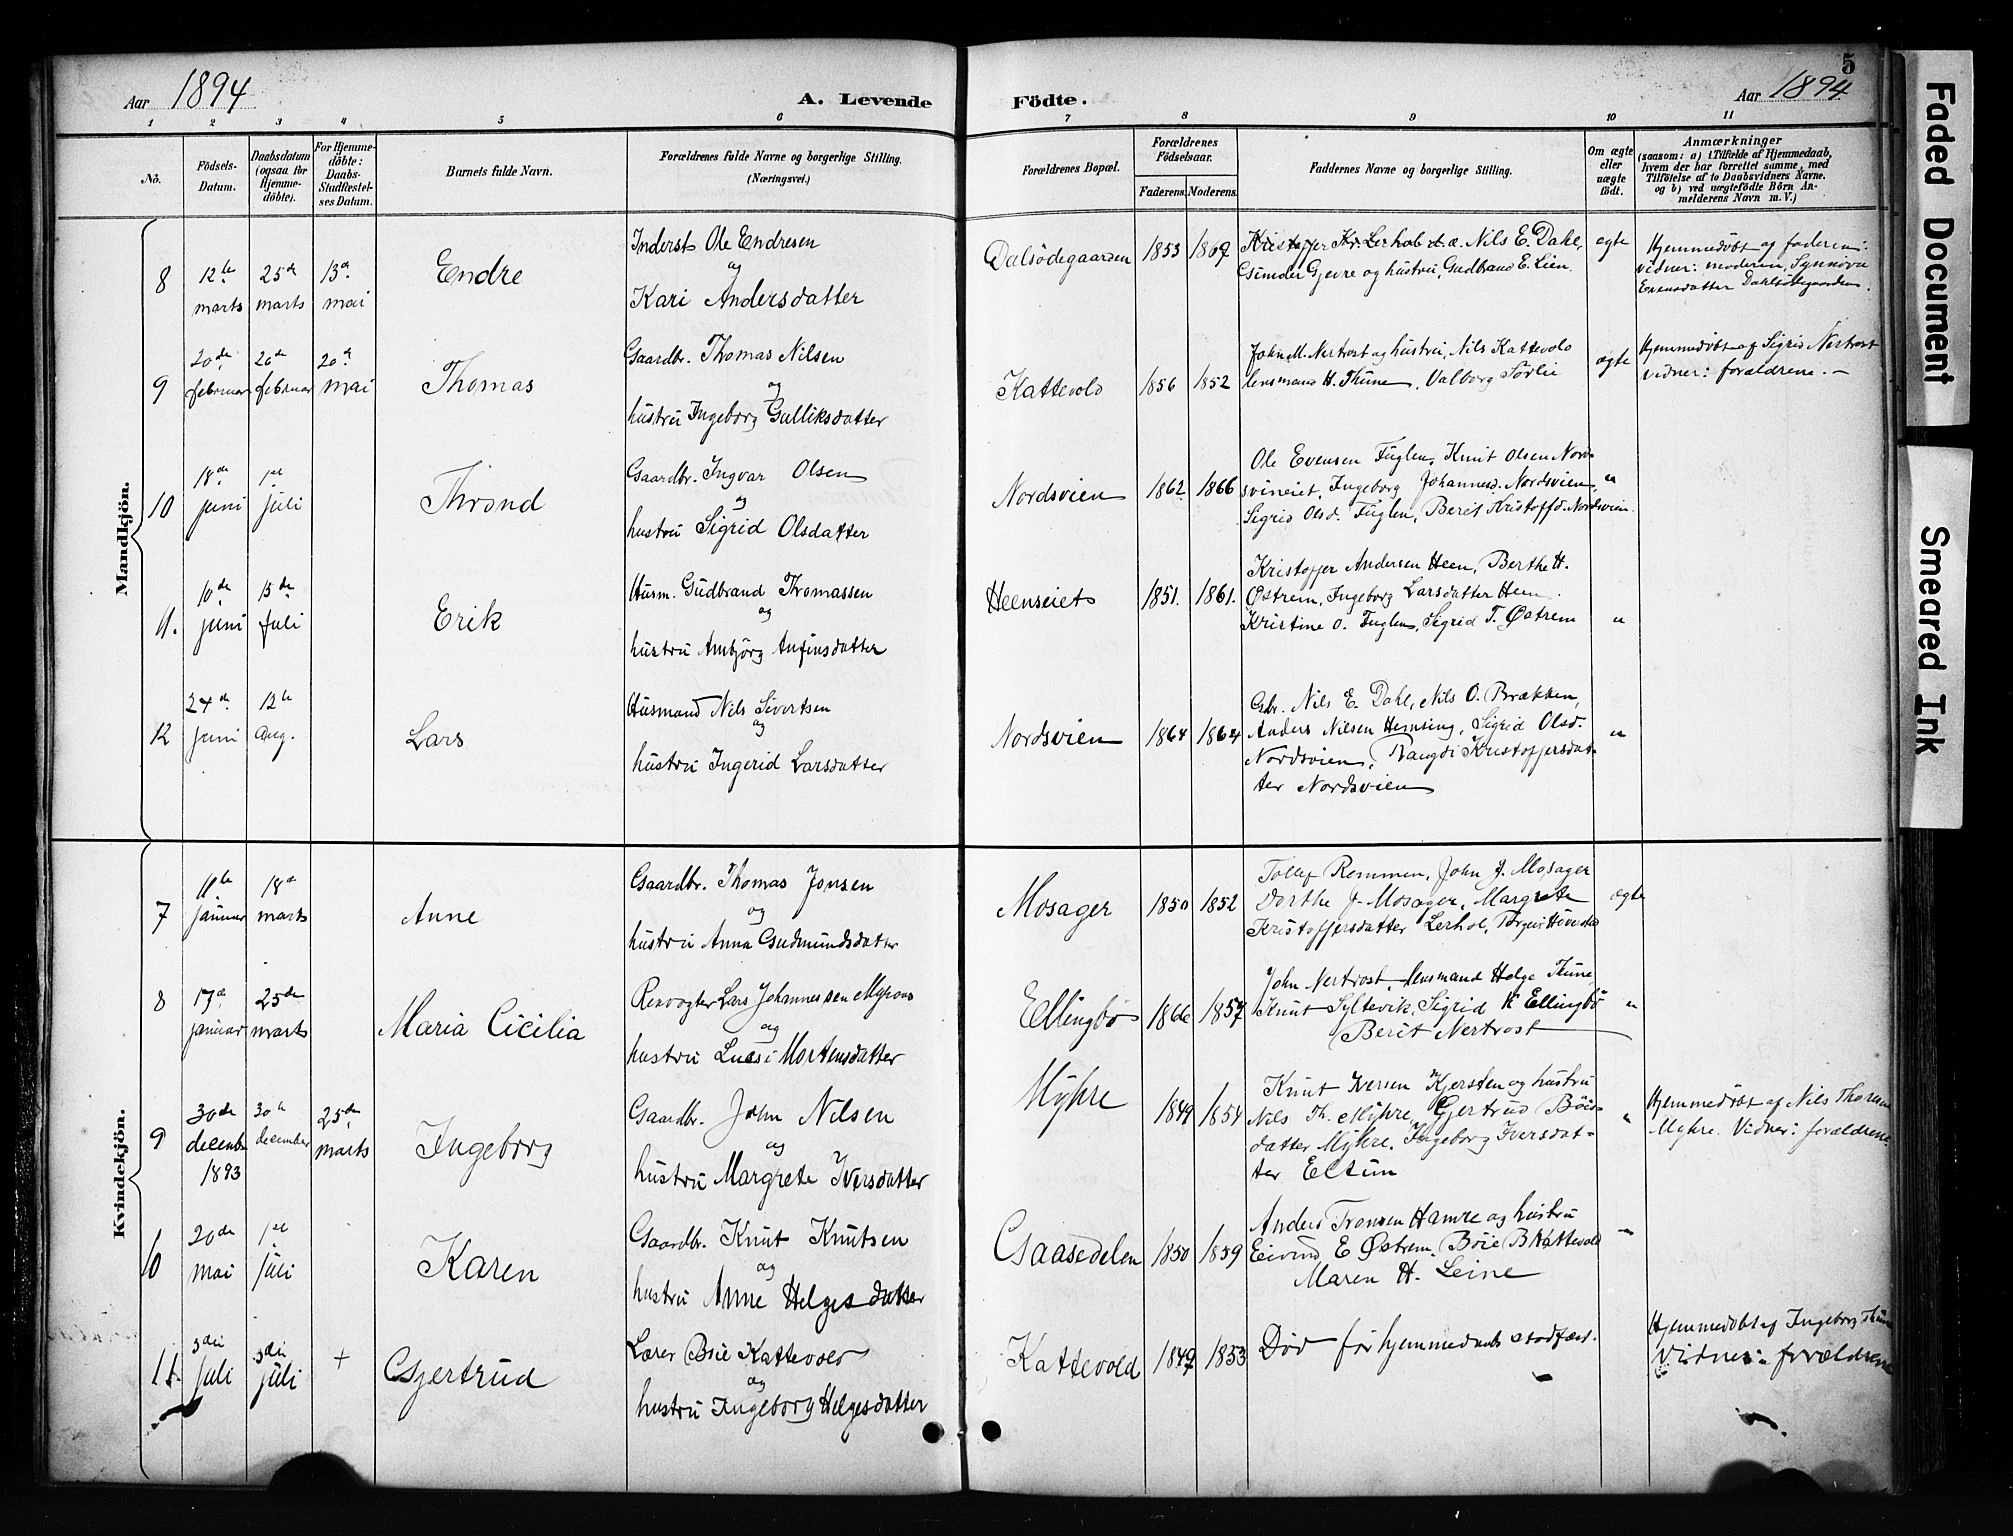 5
Aar 1894
A. Levende Födte.
Aar 1894
1 2 3 4 5 6 7 8 9 10 11
No.
Födsels-
Datum.
Daabsdatum
(ogsaa for
Hjemme-
døbte).
For Hjemme-
döbte:
Daabs-
Stadfæstel-
ses Datum.
Barnets fulde Navn.
Forældrenes fulde Navne og borgerlige Stilling.
(Næringsvei.)
Forældrenes Bopæl.
Forældrenes
Födselsaar.
Faderens. Moderens.
Faddernes Navne og borgerlige Stilling.
Om ægte
eller
uægte
født.
Anmærkninger
(saasom: a) i Tilfælde af Hjemmedaab,
hvem der har forrettet samme, med
Tilføielse af to Daabsvidners Navne,
og b) ved uægtefödte Börn An-
melderens Navn m. V.)
Mandkjön.
8
12te
marts
25de
marts
13de
mai
Endre
Inderst Ole Endresen
og
Kari Andersdatter
Dalsödegaarden
1853
1867
Kristoffer Kr. Lerhol, Nils E. Dahl,
Gunder Gjevre og hustru, Gudbrand E. Lien.
ægte
Hjemmedöbt af faderen:
vidner: moderen, Synnöva
Evensdatter Dahlsödegaarden.
9
20de
februar
26de
februar
20de
mai
Thomas
Gaardbr. Thomas Nilsen
og
hustru Ingeborg Gulliksdatter
Kattevold
1856
1852
John M. Nertrost og hustru, Nils Kattevold
lensmand H. Thune, Valborg Sörlie
ægte
Hjemmedöbt af Sigrid Nertrost
vidner: forældrene. -
10
18de
juni
1ste
juli
Thrond
Gaardbr. Ingvar Olsen
og
hustru Sigrid Olsdatter
Nordsvien
1862
1866
Ole Evensen Fuglen, Knut Olsen Nord-
svineiet, Ingeborg Johannesd. Nordsvien,
Sigrid Olsd. Fuglen, Berit Kristoffd. Nordsvien
"
11.
10de
juni
15de
juli
Erik
Husm. Gudbrand Thomassen
og
hustru Ambjörg Anfinsdatter
Heenseiet
1851.
1861.
Kristoffer Andersen Heen, Berthe H.
Østrem, Ingeborg Larsdatter Heen.
Kristine O. Fuglen, Sigrid T. Østrem
"
12
24de
juni
12te
Aug.
Lars
Husmand Nils Sivertsen
og
hustru Ingerid Larsdatter
Nordsvien
1864
1864
Gbr. Nils E. Dahl, Nils O. Brækken,
Anders Nilsen Hemsing, Sigrid Olsd.
Nordsvien, Rangdi Kristoffersdat-
ter Nordsvien
"
Kvindekjön.
7
11te
januar
18de
marts
Anne
Gaardbr. Thomas Jonsen
og
hustru Anna Gudmundsdatter
Mosager
1850
1852
Tollef Remmen, John J. Mosager
Dorthe J. Mosager, Margrete
Kristoffersdatter Lerhol,
ægte
8
17de
januar
25de
marts
Maria Cicilia
Renvogter Lars Johannessen
og
hustru Lussi Mortensdatter
Ellingbö
1866
1857
John Nertrost, lensmand Helge Thune
Knut Syltevik, Sigrid K Ellingbö
Berit Nertrost
"
9
30de
decemb.
1893
30te
december
25de
marts
Ingeborg
Gaardbr. John Nilsen
og
hustru Margrete Iversdatter
Myhre
1849
1854
Knut Iversen Kjersten og hustru
Nils Th. Myhre, Gjertrud Böis-
datter Myhre, Ingeborg Iversdat-
ter Eltun
"
Hjemmedöbt af Nils Thorsen
Myhre. Vidner: forældrene
10
20de
mai
1ste
juli
Karen
Gaardbr. Knut Knutsen
og
hustru Anne Helgesdatter
Gaasedelen
1850
1859
Anders Tronsen Hamre og hustru
Eivind E Østrem, Böie B Kattevold
Maren H. Leine
"
11.
3die
juli
3die
juli
+
Gjertrud
Lærer Böie Kattevold
og
hustru Ingeborg Helgesdatter
Kattevold
1849
1853
Död för hjemmedaabs stadfæst.
Hjemmedöbt af Ingeborg Thune
Vidner: forældrene
Faded Document
Smeared Ink